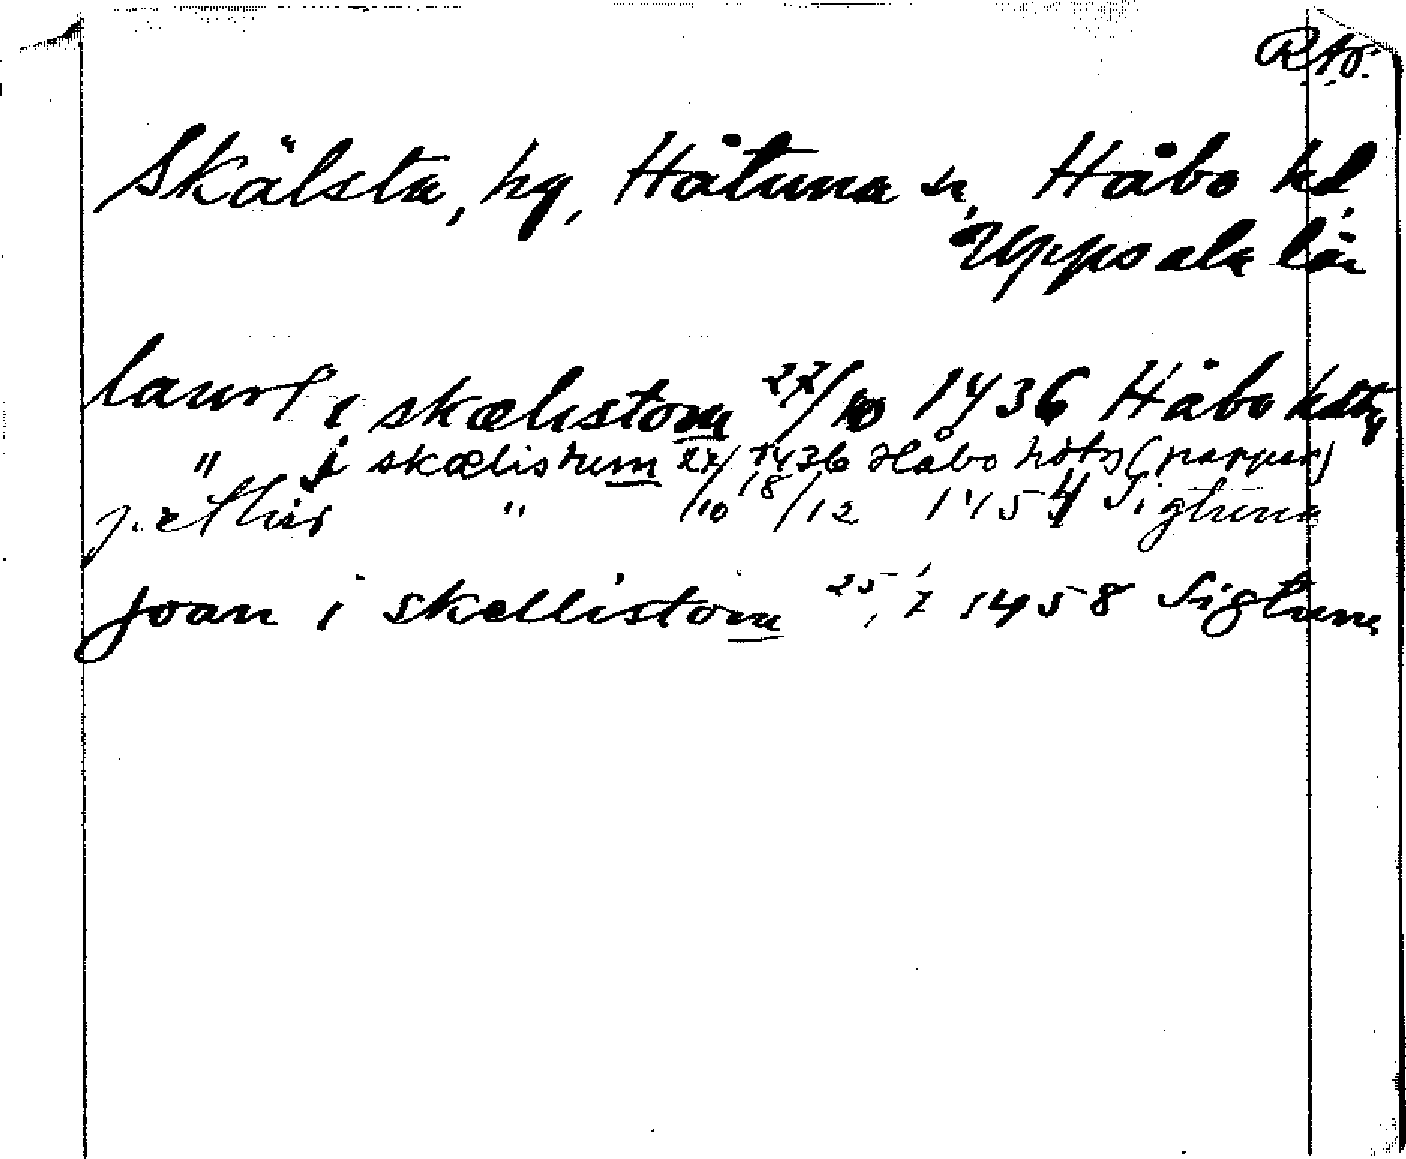 R.A.
Skälsta, hg, Håtuna sn, Håbo hd,
Uppsala län
laurꝭ i skælistom 27/10 1436 Håbo hdtg
" i skælistum 27/10 1436 Håbo hdtg (papper)
pæthar " 18/12 1454 Sigtuna
Joan i skellistom 25/7 1458 Sigtuna